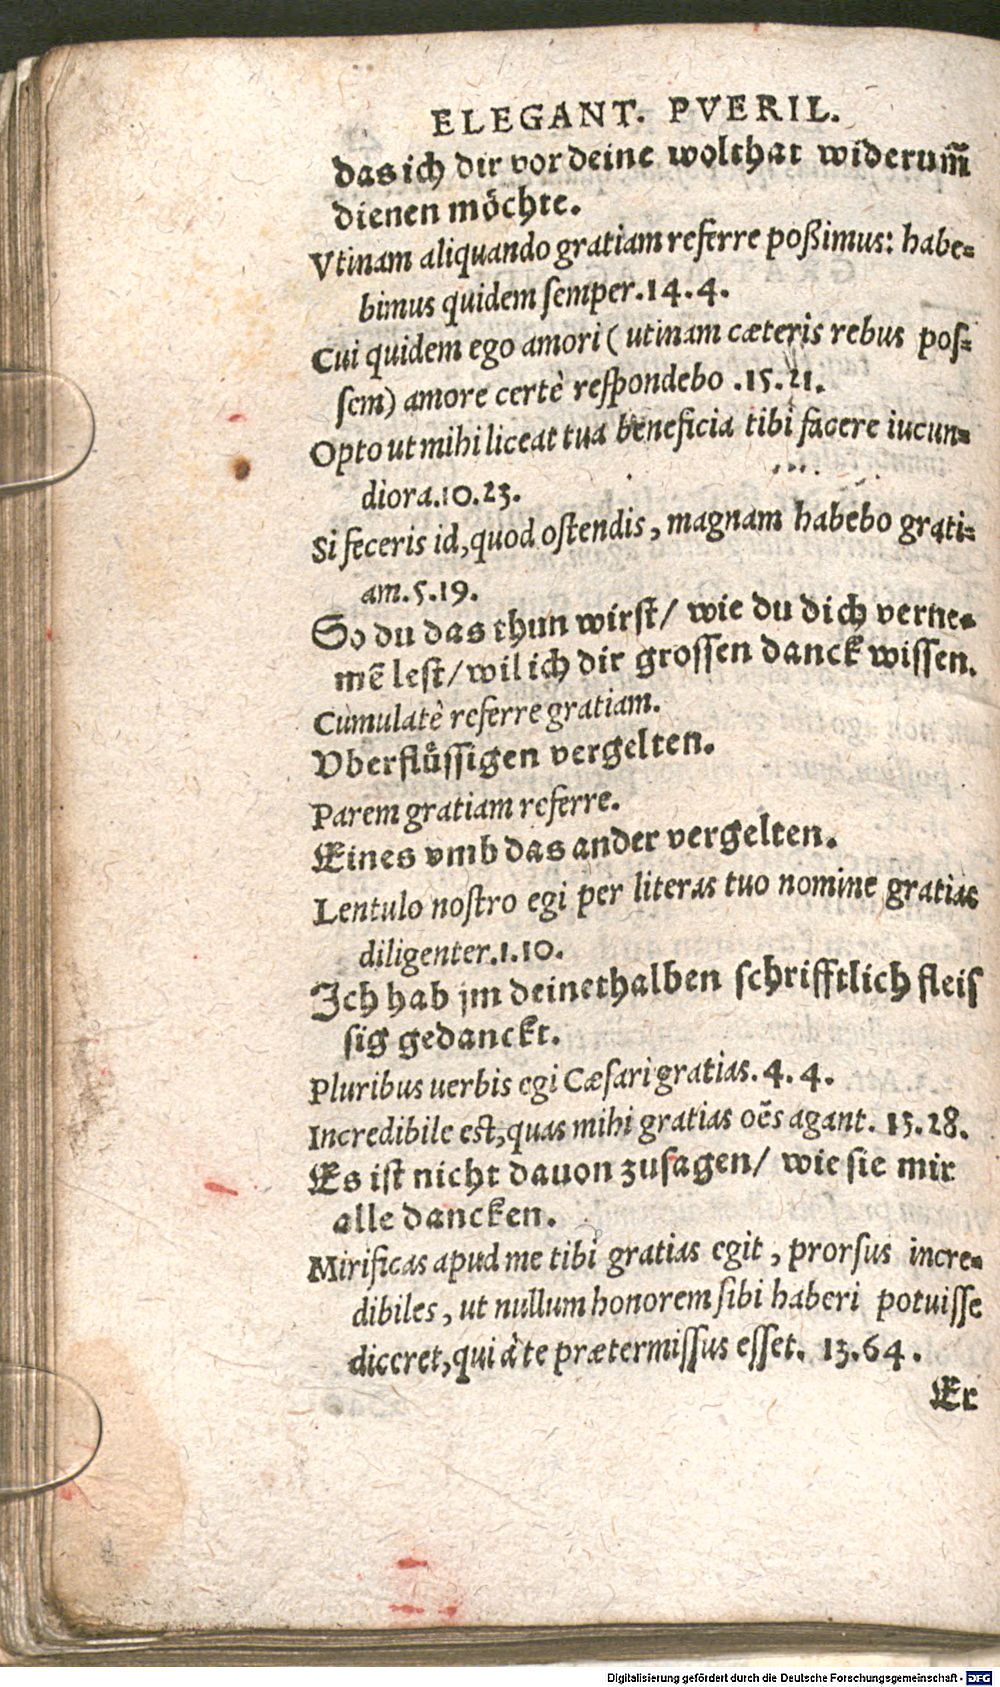 ELEGANT. PVERIL.
das ich dir vor deine wolthat widerum̃
dienen möchte.
Vtinam aliquando gratiam referre poßimus: habe-
bimus quidem semper. 14. 4.
Cui quidem ego amori (utinam cæteris rebus pos-
sem) amore certè respondebo .15. 21.
Opto ut mihi liceat tua beneficia tibi facere iucun-
diora. 10. 23.
Si feceris id, quod ostendis, magnam habebo grati-
am. 5. 19.
So du das thun wirst/ wie du dich verne-
mẽ lest/ wil ich dir grossen danck wissen.
Cumulatè referre gratiam.
Vberflüssigen vergelten.
Parem gratiam referre.
Eines vmb das ander vergelten.
Lentulo nostro egi per literas tuo nomine gratias
diligenter. 1. 10.
Ich hab jm deinethalben schrifftlich fleis
sig gedanckt.
Pluribus uerbis egi Cæsari gratias. 4. 4.
Incredibile est, quas mihi gratias oẽs agant. 13. 28.
Es ist nicht dauon zusagen/ wie sie mir
alle dancken.
Mirificas apud me tibi gratias egit, prorsus incre-
dibiles, ut nullum honorem sibi haberi potuisse
diceret, qui à te prætermissus esset. 13. 64.
Er
Digitalisierung gefördert durch die Deutsche Forschungsgemeinschaft - DFG